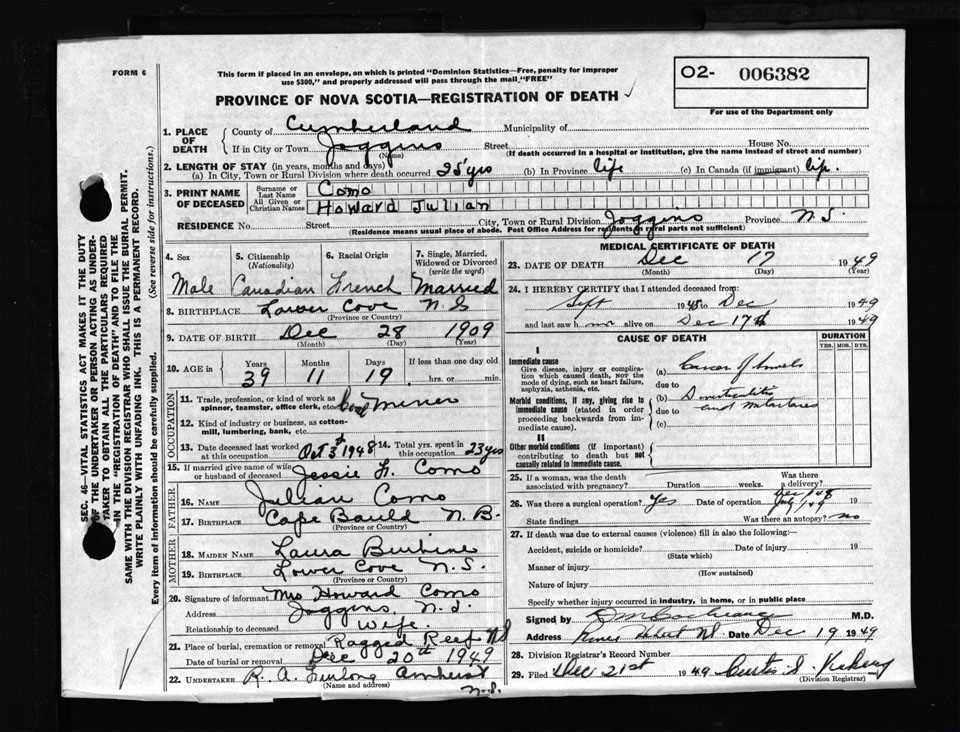 FORM 6
This form if placed in an envelope, on which is printed "Dominion Statistics—Free, penalty for improper
use $300," and properly addressed will pass through the mail "FREE"
O2- 006382
For use of the Department only
PROVINCE OF NOVA SCOTIA—REGISTRATION OF DEATH ✓
SEC. 46—VITAL STATISTICS ACT MAKES IT THE DUTY
OF THE UNDERTAKER OR PERSON ACTING AS UNDER-
TAKER TO OBTAIN ALL THE PARTICULARS REQUIRED
IN THE "REGISTRATION OF DEATH" AND TO FILE THE
SAME WITH THE DIVISION REGISTRAR WHO SHALL ISSUE THE BURIAL PERMIT.
WRITE PLAINLY WITH UNFADING INK. THIS IS A PERMANENT RECORD.
Every item of information should be carefully supplied. (See reverse side for instructions.)
1. PLACE OF DEATH County of Cumberland Municipality of
If in City or Town Joggins Street House No.
(Name) (If death occurred in a hospital or institution, give the name instead of street and number)
2. LENGTH OF STAY (in years, months and days)
(a) In City, Town or Rural Division where death occurred 25 yrs (b) In Province life (c) In Canada (if immigrant) life.
3. PRINT NAME OF DECEASED
Surname or Last Name Como
All Given or Christian Names Howard Julian
RESIDENCE No. Street City, Town or Rural Division Joggins Province N.S.
(Residence means usual place of abode. Post Office Address for residents in rural parts not sufficient)
4. Sex 5. Citizenship (Nationality) 6. Racial Origin 7. Single, Married, Widowed or Divorced (write the word)
Male Canadian French Married
8. BIRTHPLACE Lower Cove N S
(Province or Country)
9. DATE OF BIRTH Dec 28 1909
(Month) (Day) (Year)
10. AGE in Years Months Days If less than one day old
39 11 19 hrs. or min.
OCCUPATION
11. Trade, profession or kind of work as spinner, teamster, office clerk, etc. Coal Miner
12. Kind of industry or business, as cotton-mill, lumbering, bank, etc.
13. Date deceased last worked at this occupation Oct 3rd 1948 14. Total yrs. spent in this occupation 23 yrs
15. If married give name of wife or husband of deceased Jessie F. Como
FATHER
16. NAME Julian Como
17. BIRTHPLACE Cape Bauld N. B.
(Province or Country)
MOTHER
18. MAIDEN NAME Laura Burbine
19. BIRTHPLACE Lower Cove N.S.
(Province or Country)
20. Signature of informant Mrs Howard Como
Address Joggins, N.S.
Relationship to deceased Wife.
21. Place of burial, cremation or removal Ragged Reef N S
Date of burial or removal Dec 20th 1949
22. UNDERTAKER R. A. Furlong Amherst
(Name and address) N.S.
MEDICAL CERTIFICATE OF DEATH
23. DATE OF DEATH Dec 17 1949
(Month) (Day) (Year)
24. I HEREBY CERTIFY that I attended deceased from:
Sept 1948 to Dec 1949
and last saw h m alive on Dec 17th 1949
CAUSE OF DEATH DURATION
YRS. MOS. DYS.
I
Immediate cause
Give disease, injury or complication which caused death, NOT the mode of dying, such as heart failure, asphyxia, asthenia, etc.
(a) Cancer of bowels
due to
Morbid conditions, if any, giving rise to immediate cause (stated in order proceeding backwards from immediate cause).
(b)
due to
(c)
II
Other morbid conditions (if important) contributing to death but not causally related to immediate cause.
25. If a woman, was the death associated with pregnancy? Duration weeks. Was there a delivery?
26. Was there a surgical operation? Yes Date of operation Dec/48 July/49 19
State findings Was there an autopsy? no
27. If death was due to external causes (violence) fill in also the following:—
Accident, suicide or homicide? Date of injury 19
(State which)
Manner of injury
(How sustained)
Nature of injury
Specify whether injury occurred in industry, in home, or in public place
Signed by M.D.
Address River Hebert NS. Date Dec 19 1949
28. Division Registrar's Record Number
29. Filed Dec 21st 1949 Curtis S.
(Division Registrar)